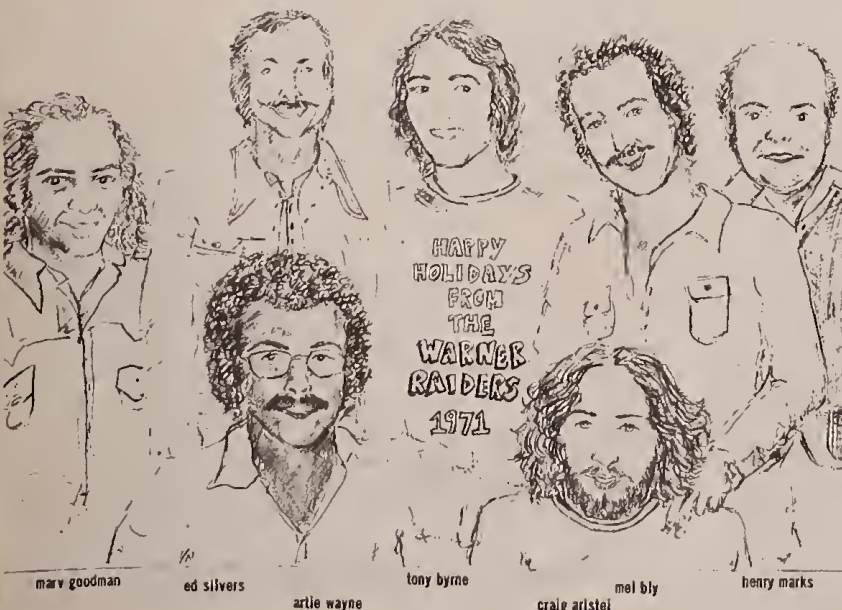 HAPPY
HOLIDAYS
FROM
THE
WARNER
RAIDERS
1971
marv goodman
ed silvers
artie wayne
tony byrne
craig aristei
mel bly
henry marks